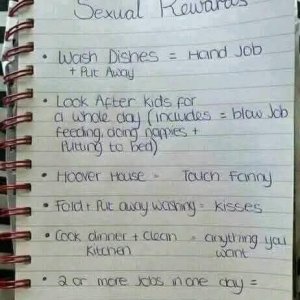 Sexual Rewards
• Wash Dishes = Hand Job
+ Put Away
• Look After kids for
a whole day (includes = blow Job
feeding, doing nappies +
Putting to bed)
• Hoover House = Touch Fanny
• Fold + Put away washing = kisses
• Cook dinner + Clean = anything you
Kitchen want
• 2 or more Jobs in one day =